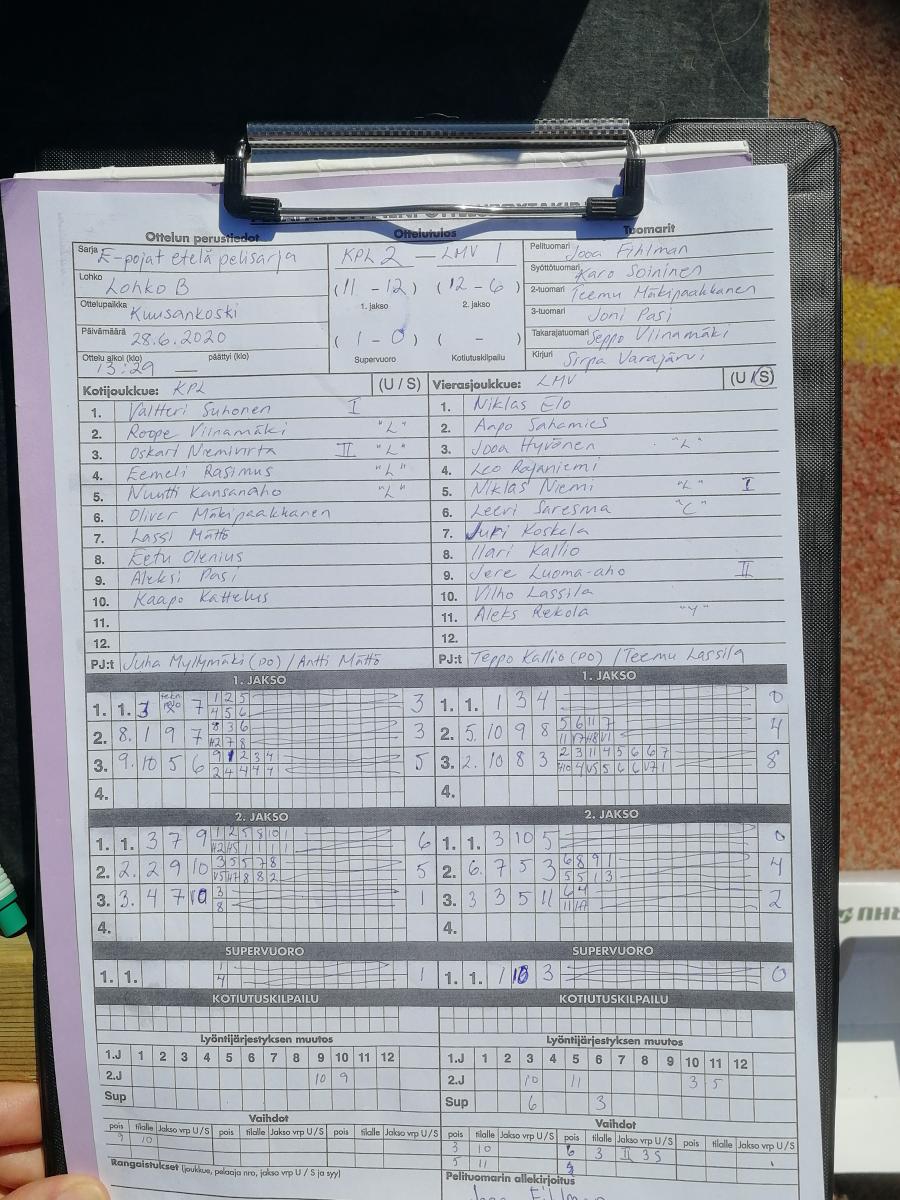 Ottelun perustiedot Ottelutulos Tuomarit
Sarja E-pojat etelä pelisarja
KPL 2 — LMV 1
Pelituomari Jooa Fihlman
Lohko Lohko B
(11 - 12) (12 - 6)
1. jakso 2. jakso
Syöttötuomari Karo Soininen
2-tuomari Teemu Mäkipaakkanen
Ottelupaikka Kuusankoski
3-tuomari Joni Pasi
Päivämäärä 28.6.2020
(1 - 0) ( - )
Supervuoro Kotiutuskilpailu
Takarajatuomari Seppo Viinamäki
Ottelu alkoi (klo) 13:29 päättyi (klo) —
Kirjuri Sirpa Varajärvi
Kotijoukkue: KPL (U / S) Vierasjoukkue: LMV (U / S)
1. Valtteri Suhonen I 1. Niklas Elo
2. Roope Viinamäki "L" 2. Aapo Sahamies
3. Oskari Niemivirta II "L" 3. Jooa Hyvönen "L"
4. Eemeli Rasimus "L" 4. Leo Rajaniemi
5. Nuutti Kansanaho "L" 5. Niklas Niemi "L" I
6. Oliver Mäkipaakkanen 6. Leevi Saresma "C"
7. Lassi Mättö 7. Juri Koskela
8. Eetu Olenius 8. Ilari Kallio
9. Aleksi Pasi 9. Jere Luoma-aho II
10. Kaapo Kattelus 10. Vilho Lassila
11. 11. Aleks Rekola "Y"
12. 12.
PJ:t Juha Myllymäki (PO) / Antti Mättö PJ:t Teppo Kallio (PO) / Teemu Lassila
1. JAKSO 1. JAKSO
1. 1. 3 7 3 1. 1. 1 3 4 0
2. 8. 1 9 7 3 2. 5. 10 9 8 4
3. 9. 10 5 6 5 3. 2. 10 8 3 8
4. 4.
2. JAKSO 2. JAKSO
1. 1. 3 7 9 6 1. 1. 3 10 5 0
2. 2. 2 9 10 5 2. 6. 7 5 3 4
3. 3. 4 7 10 1 3. 3 3 5 11 2
4. 4.
SUPERVUORO SUPERVUORO
1. 1. 1 4 1 1. 1. 1 10 3 0
KOTIUTUSKILPAILU KOTIUTUSKILPAILU
Lyöntijärjestyksen muutos Lyöntijärjestyksen muutos
1.J 1 2 3 4 5 6 7 8 9 10 11 12 1.J 1 2 3 4 5 6 7 8 9 10 11 12
2.J 10 9 2.J 10 11 3 5
Sup Sup 6 3
Vaihdot Vaihdot
pois tilalle Jakso vrp U / S pois tilalle Jakso vrp U / S pois tilalle Jakso vrp U / S pois tilalle Jakso vrp U / S pois tilalle Jakso vrp U / S pois tilalle Jakso vrp U / S
9 10 3 10 6 3 II 3 S
5 11
Rangaistukset (joukkue, pelaaja nro, jakso vrp U / S ja syy) Pelituomarin allekirjoitus